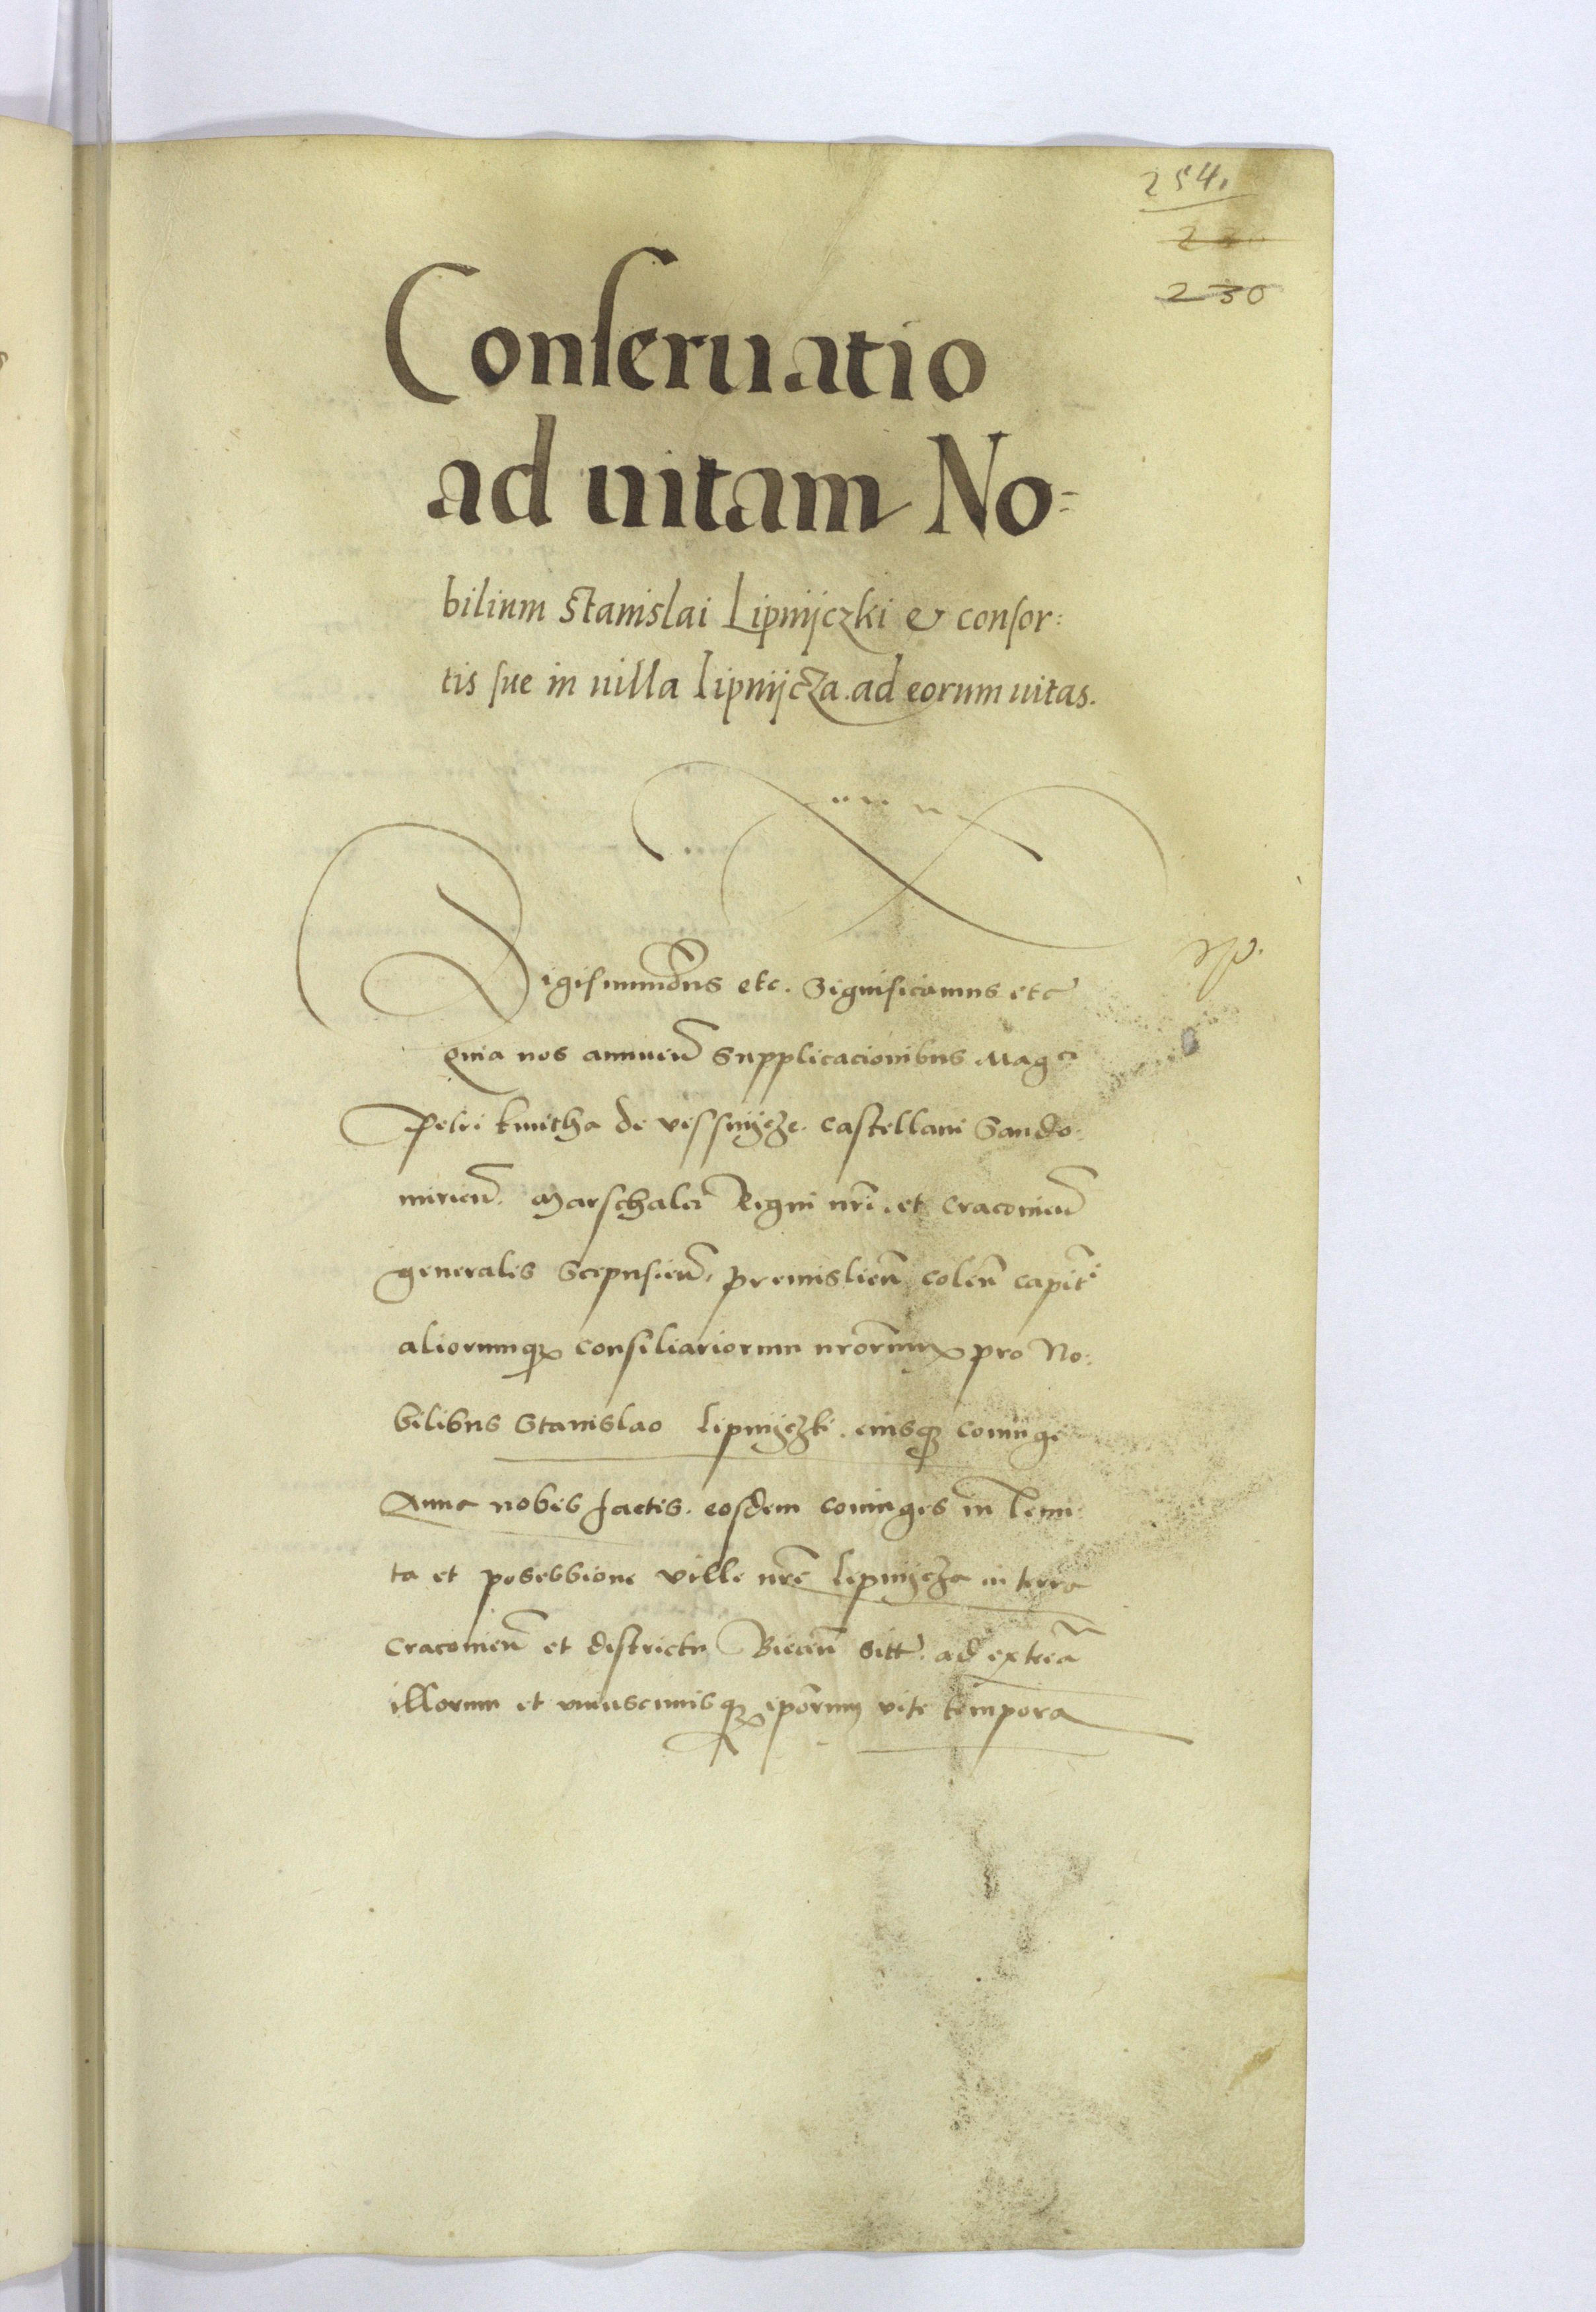 254.
230
Conseruatio
ad uitam No=
bilium Stanislai Lipnijczki & consor:
tis sue in uilla Lipnijcza. ad eorum uitas.
Sigismundus etc. Significamus etc
Quia nos annuen̄ Supplicacionibus Magci
Petri kmitha de vissnijcze. Castellani Sando:
mirien̄. Marschalci Regni nr̄i. et Cracouien̄
generalis Scepusien̄. Premislien̄ Colen̄ Capit̄i
aliorumq3 Consiliariorum nr̄orum pro No:
bilibus Stanislao Lipnijczki. eiusq3 Coniuge
Anna nobis factis. eosdem Coniuges in Tenu
ta et possessione ville nr̄e Lipnijcza in terra
Cracouien̄ et districtu Biecen̄ Sitt. ad extrēa
illorum et vniuscuiusq3 ip̄orum vite tempora